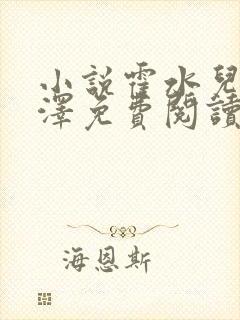 小說霍水兒
澤免費閱讀
海恩斯